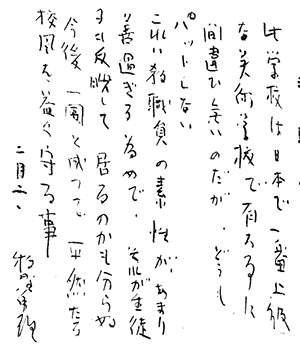 此学校は日本で一番上級
な美術学校で有るに
間違ひ無いのだが、どうも
パットしない
これは教職員の素性が、あまり
善過ぎる為めで、それが生徒
に反映して居るのかも分らぬ
今後一団と成つて平然たる
校風を益々守る事
二月三、